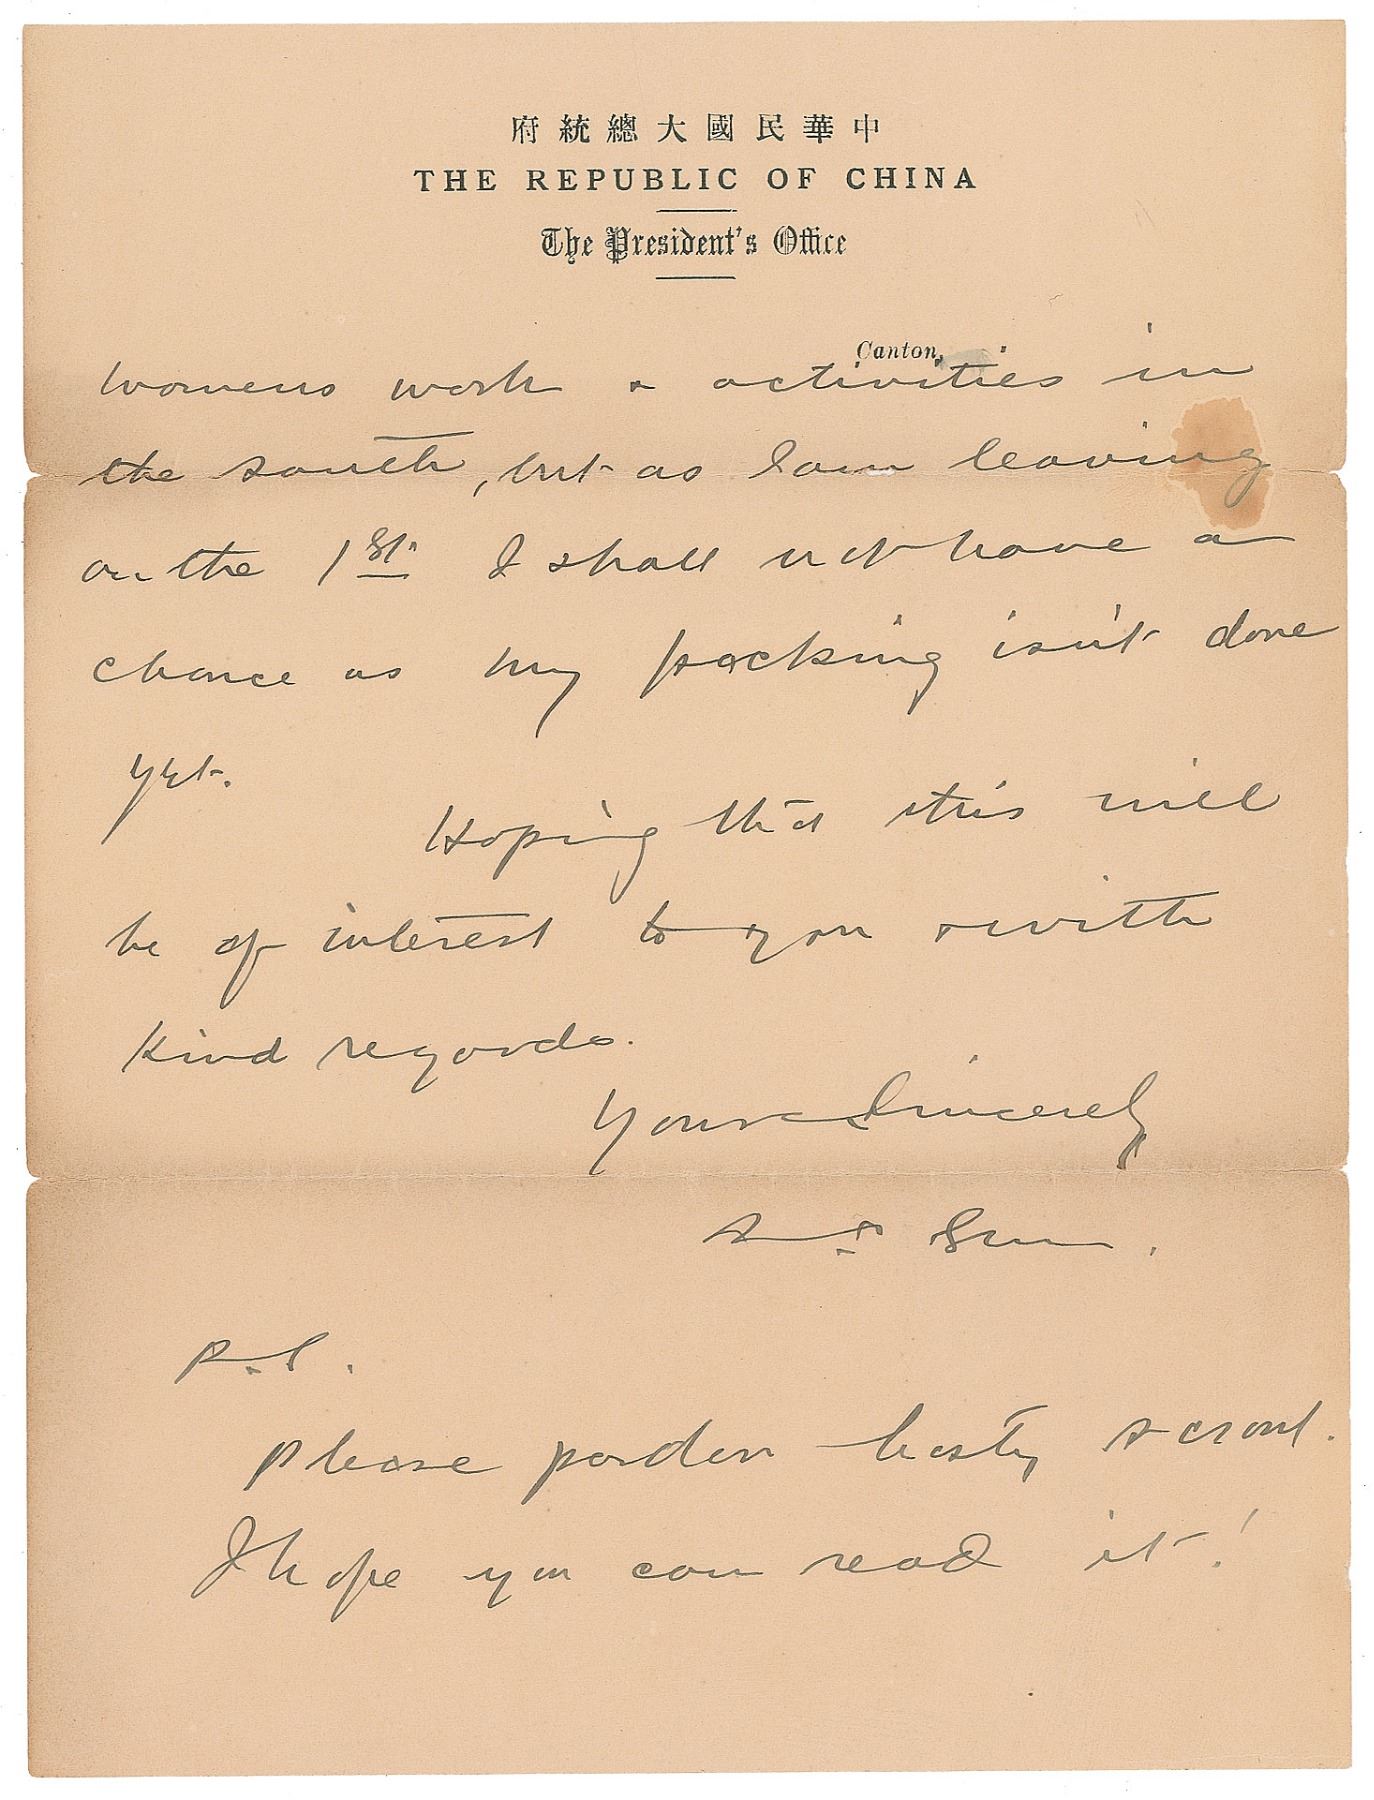 府統總大國民華中
THE REPUBLIC OF CHINA
The President's Office
Canton,
womens work & activities in
the south, but as I am leaving
on the 1st I shall not have a
chance as my packing isn't done
yet.
Hoping that this will
be of interest to you & with
kind regards.
Yours Sincerely
Sun.
P.S.
Please pardon hasty scrawl.
I hope you can read it!